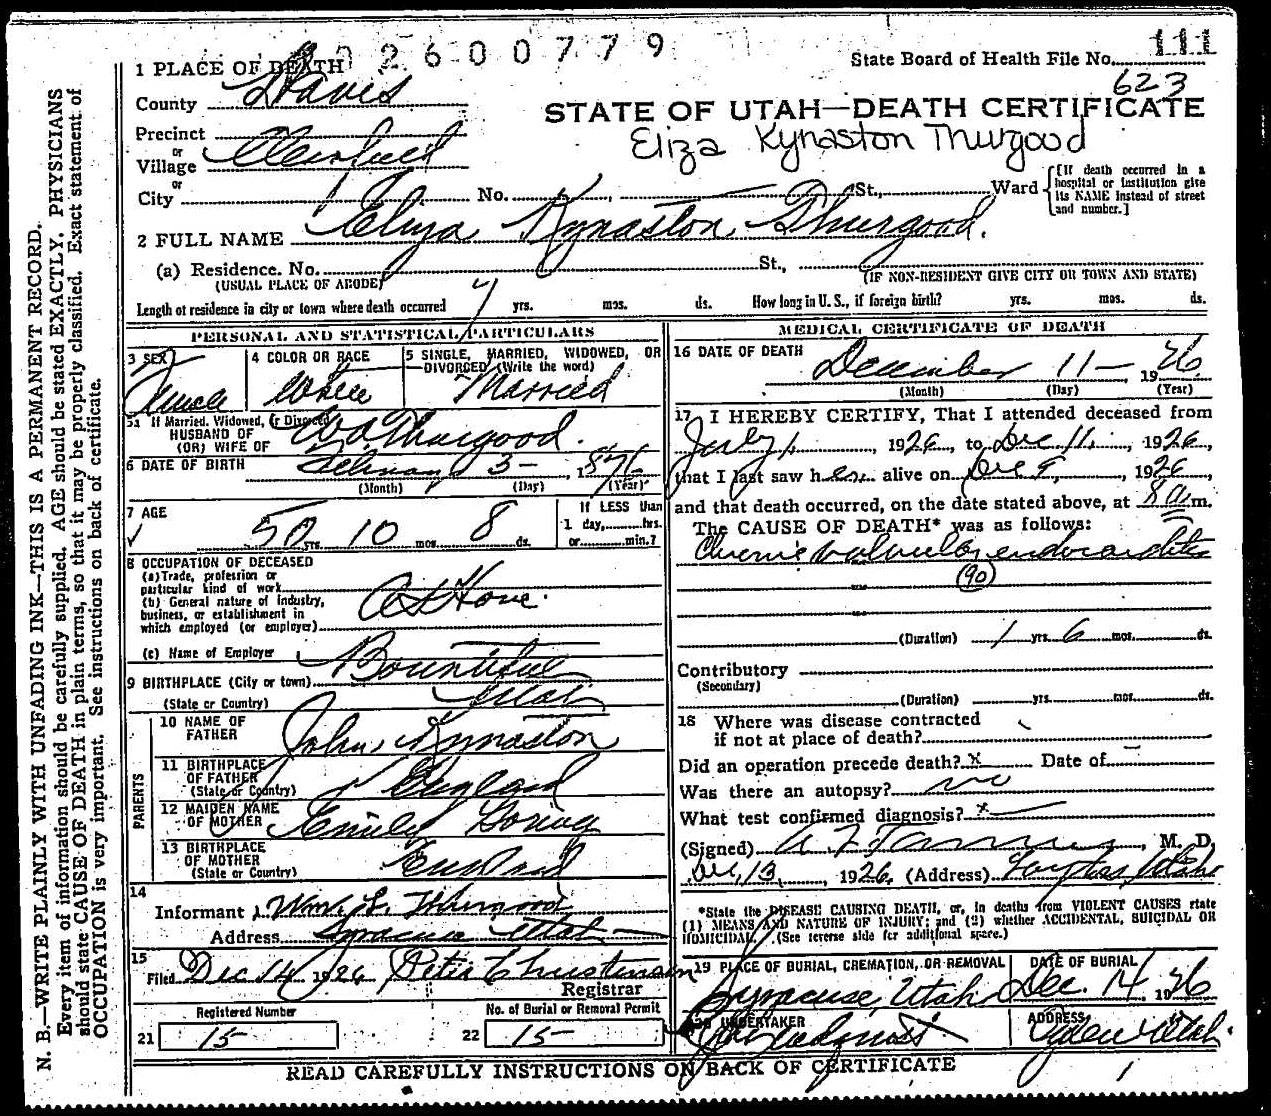 02600779
111
State Board of Health File No.
623
1 PLACE OF DEATH
County Davis
STATE OF UTAH—DEATH CERTIFICATE
Eliza Kynaston Thurgood
Precinct
or
Village Clearfield
or
City No. St., Ward
[If death occurred in a
hospital or institution give
its NAME instead of street
and number.]
2 FULL NAME Eliza Kynaston Thurgood.
(a) Residence. No. St.,
(USUAL PLACE OF ABODE) (IF NON-RESIDENT GIVE CITY OR TOWN AND STATE)
Length of residence in city or town where death occurred yrs. mos. ds. How long in U. S., if foreign birth? yrs. mos. ds.
PERSONAL AND STATISTICAL PARTICULARS
3 SEX Female
4 COLOR OR RACE White
5 SINGLE, MARRIED, WIDOWED, OR
DIVORCED (Write the word)
Married
5a If Married, Widowed, or Divorced
HUSBAND OF
(OR) WIFE OF Thurgood.
6 DATE OF BIRTH February 3- 1876
(Month) (Day) (Year)
7 AGE
50 yrs. 10 mos. 8 ds.
If LESS than
1 day, hrs.
or min.?
8 OCCUPATION OF DECEASED
(a) Trade, profession or
particular kind of work
(b) General nature of industry,
business, or establishment in
which employed (or employer)
At Home.
(c) Name of Employer
9 BIRTHPLACE (City or town) Bountiful
(State or Country) Utah
PARENTS
10 NAME OF
FATHER John Kynaston
11 BIRTHPLACE
OF FATHER
(State or Country) England
12 MAIDEN NAME
OF MOTHER Emily
13 BIRTHPLACE
OF MOTHER
(State or Country) England
14
Informant Wm. Thurgood
Address Syracuse Utah
15
Filed Dec 14 1926 Peter Christensen
Registrar
Registered Number
21 15
No. of Burial or Removal Permit
22 15
MEDICAL CERTIFICATE OF DEATH
16 DATE OF DEATH
December 11— 1926
(Month) (Day) (Year)
17 I HEREBY CERTIFY, That I attended deceased from
July 1, 1926, to Dec 11, 1926,
that I last saw her alive on Dec 1926,
and that death occurred, on the date stated above, at 8 a m.
The CAUSE OF DEATH* was as follows:
Chronic valvular endocarditis
(90)
(Duration) 1 yrs. 6 mos. ds.
Contributory
(Secondary)
(Duration) yrs. mos. ds.
18 Where was disease contracted
if not at place of death?
Did an operation precede death? x Date of
Was there an autopsy? no
What test confirmed diagnosis? x
(Signed) M. D.
Dec, 13, 1926. (Address)
*State the DISEASE CAUSING DEATH, or, in deaths from VIOLENT CAUSES state
(1) MEANS AND NATURE OF INJURY; and (2) whether ACCIDENTAL, SUICIDAL OR
HOMICIDAL. (See reverse side for additional space.)
19 PLACE OF BURIAL, CREMATION, OR REMOVAL
Syracuse, Utah
DATE OF BURIAL
Dec. 14 1926
20 UNDERTAKER
ADDRESS
Ogden Utah
READ CAREFULLY INSTRUCTIONS ON BACK OF CERTIFICATE
N. B.—WRITE PLAINLY WITH UNFADING INK—THIS IS A PERMANENT RECORD.
Every item of information should be carefully supplied. AGE should be stated EXACTLY. PHYSICIANS
should state CAUSE OF DEATH in plain terms, so that it may be properly classified. Exact statement of
OCCUPATION is very important. See instructions on back of certificate.